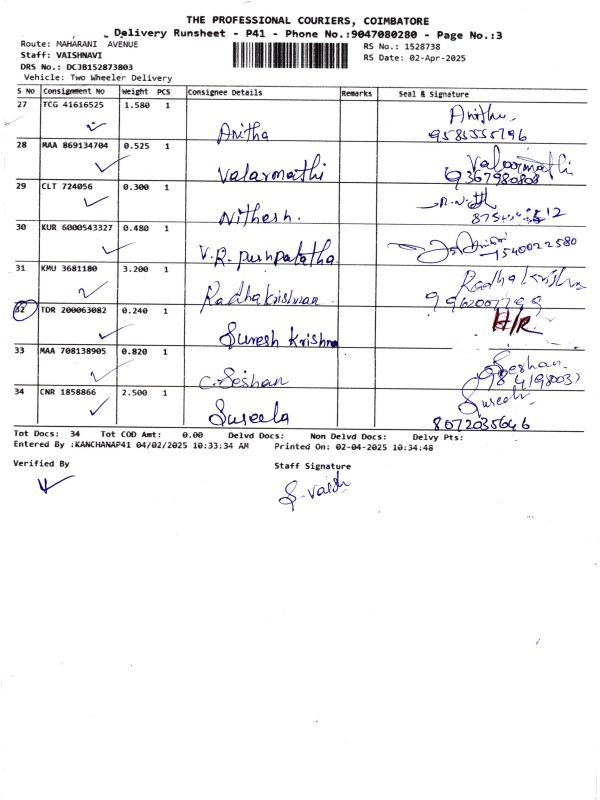 THE PROFESSIONAL COURIERS, COIMBATORE
Delivery Runsheet - P41 - Phone No.:9047080280 - Page No.:3
Route: MAHARANI AVENUE
RS No.: 1528738
Staff: VAISHNAVI
RS Date: 02-Apr-2025
DRS No.: DCJB152873803
Vehicle: Two Wheeler Delivery
S No Consignment No Weight PCS Consignee Details Remarks Seal & Signature
27 TCG 41616525 1.580 1 Anitha Anitha
9585555796
28 MAA 869134704 0.525 1 Valarmathi Valarmathi
9367980808
29 CLT 724056 0.300 1 Nithesh.
30 KUR 6000543327 0.480 1 V.R. pushpalatha
1540022580
31 KMU 3681180 3.200 1 Radhakrishnan Radhakrishna
32 TDR 200063082 0.240 1 Suresh Krishna H/R
33 MAA 708138905 0.820 1 C.Seshan Seshan
34 CNR 1858866 2.500 1 Sureela
8072035646
Tot Docs: 34 Tot COD Amt: 0.00 Delvd Docs: Non Delvd Docs: Delvy Pts:
Entered By :KANCHANAP41 04/02/2025 10:33:34 AM Printed On: 02-04-2025 10:34:48
Verified By Staff Signature
S. Vaish